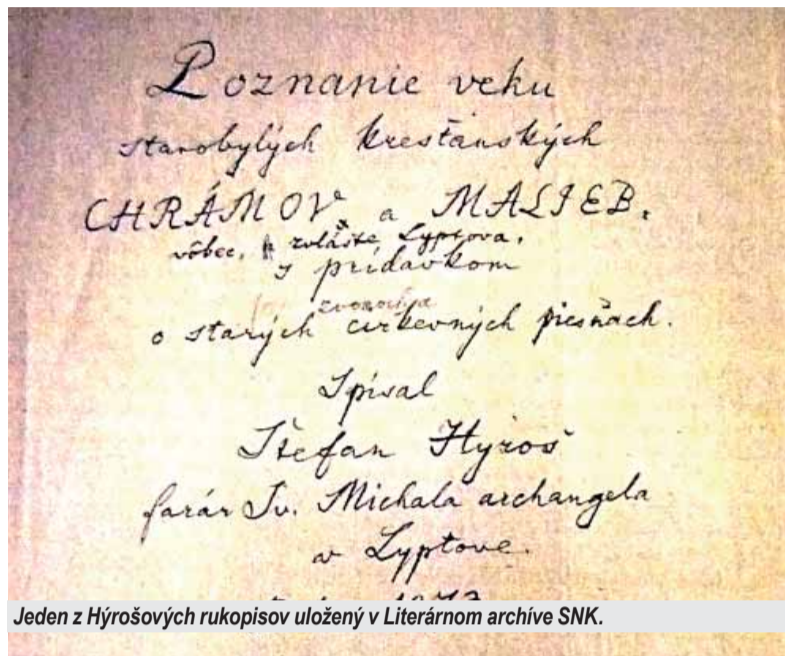 Poznanie veku
starobylých kresťanských
CHRÁMOV a MALIEB,
vôbec, zvlášte Lyptova,
s prídavkom
o starých cirkevných piesňach.
Spísal
Štefan Hýroš
farár Sv. Michala archangela
v Lyptove.
Jeden z Hýrošových rukopisov uložený v Literárnom archíve SNK.